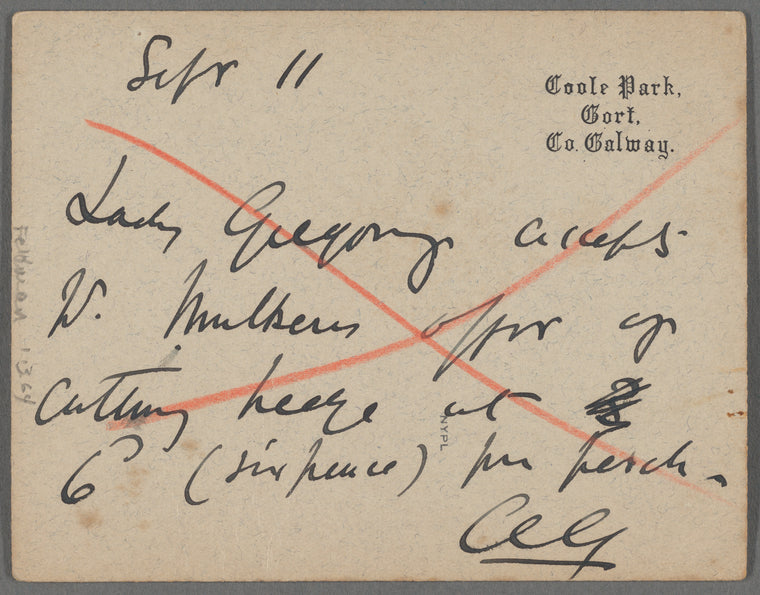 Sept 11
Coole Park,
Gort,
Co. Galway.
Lady Gregory accepts
W. Mulkerns offer of
cutting hedge at
6d (sixpence) per perch -
AG
NYPL
Feldman 1364